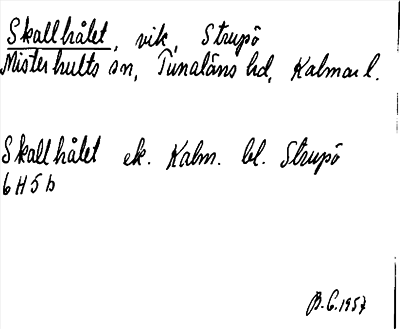 Skallhålet, vik, Strupö
Misterhults sn, Tunaläns hd, Kalmar l.
Skallhålet ek. Kalm. bl. Strupö
6H5b
B.G. 1957